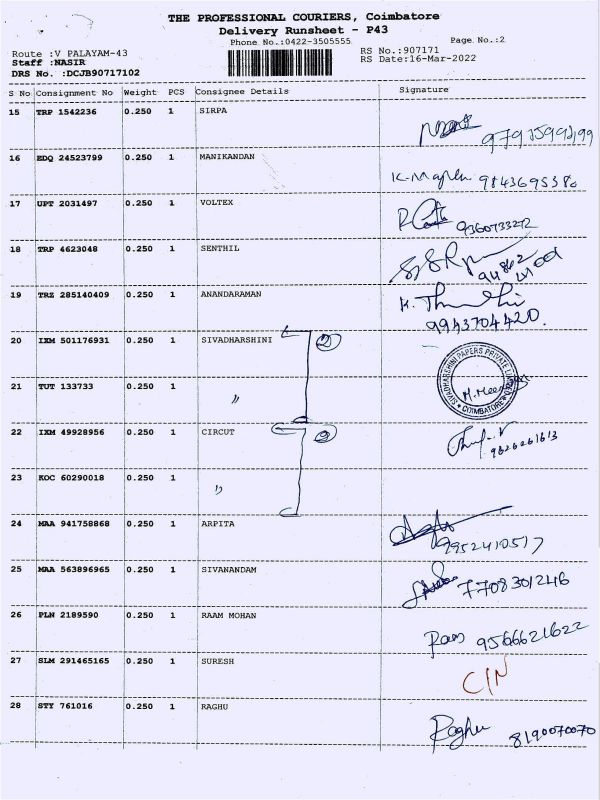 THE PROFESSIONAL COURIERS, Coimbatore
Delivery Runsheet - P43
Phone No.:0422-3505555
Page No.:2
Route :V PALAYAM-43
RS No.:907171
Staff :NASIR
RS Date:16-Mar-2022
DRS No. :DCJB90717102
S No Consignment No Weight PCS Consignee Details Signature
15 TRP 1542236 0.250 1 SIRPA
16 EDQ 24523799 0.250 1 MANIKANDAN 9843695380
17 UPT 2031497 0.250 1 VOLTEX 9360733272
18 TRP 4623048 0.250 1 SENTHIL
19 TRZ 285140409 0.250 1 ANANDARAMAN
9943704420.
20 IXM 501176931 0.250 1 SIVADHARSHINI 2
SIVADHARSHINI PAPERS PRIVATE LIMITED
COIMBATORE
21 TUT 133733 0.250 1 "
22 IXM 49928956 0.250 1 CIRCUT 2
23 KOC 60290018 0.250 1 "
24 MAA 941758868 0.250 1 ARPITA
9952410517
25 MAA 563896965 0.250 1 SIVANANDAM 7708301246
26 PLN 2189590 0.250 1 RAAM MOHAN Ram 9566621622
27 SLM 291465165 0.250 1 SURESH C/N
28 STY 761016 0.250 1 RAGHU Raghu 8190070070